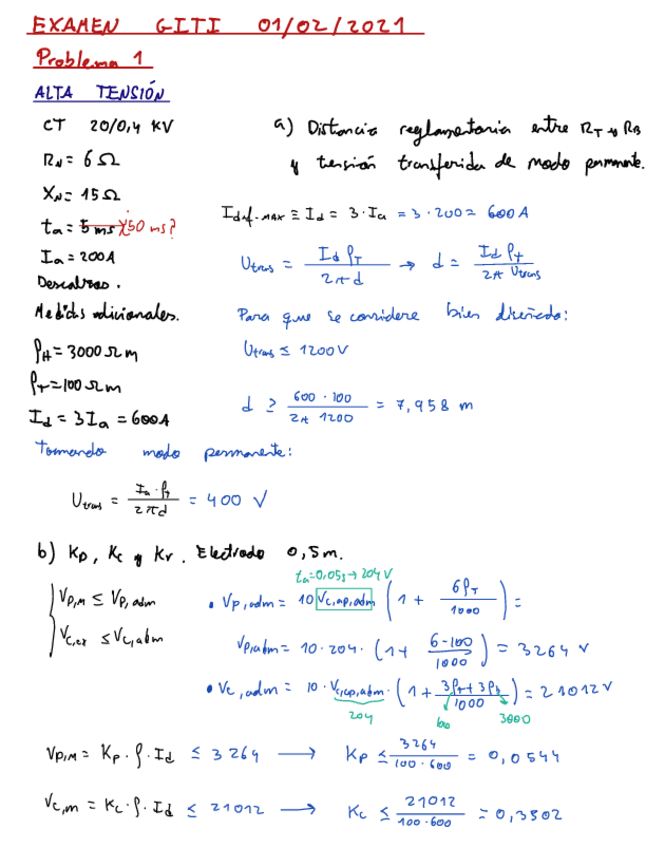 EXAMEN GITI 01/02/2021
Problema 1
ALTA TENSIÓN
CT 20/0,4 KV
R_N = 6 Ω
X_N = 15 Ω
t_a = 5 ms 50 ms?
I_a = 200A
Descalzos.
Medidas adicionales.
ρ_H = 3000 Ω m
ρ_T = 100 Ω m
I_d = 3 I_a = 600A
a) Distancia reglamentaria entre R_T y R_B
y tensión transferida de modo permanente.
I_d = 3 · I_a = 3 · 200 = 600 A
U_trans = I_d ρ_T / 2π d → d = I_d ρ_T / 2π U_trans
Para que se considere bien diseñado:
U_trans ≤ 1200 V
d ≥ 600 · 100 / 2π 1200 = 7,958 m
Tomando modo permanente:
U_trans = I_a · ρ_T / 2πd = 400 V
b) K_p, K_c y K_r. Electrodo 0,5 m.
t_a = 0,05s → 204 V
V_p,m ≤ V_p,adm
V_c,ex ≤ V_c,adm
• V_p,adm = 10 V_c,ap,adm (1 + 6ρ_T / 1000) =
V_p,adm = 10 · 204 · (1 + 6·100 / 1000) = 3264 V
• V_c,adm = 10 · V_c,ap,adm · (1 + 3ρ_T + 3ρ_H / 1000) = 21012 V
204 100 3000
V_p,m = K_p · ρ · I_d ≤ 3264 → K_p ≤ 3264 / 100 · 600 = 0,0544
V_c,m = K_c · ρ · I_d ≤ 21012 → K_c ≤ 21012 / 100 · 600 = 0,3502